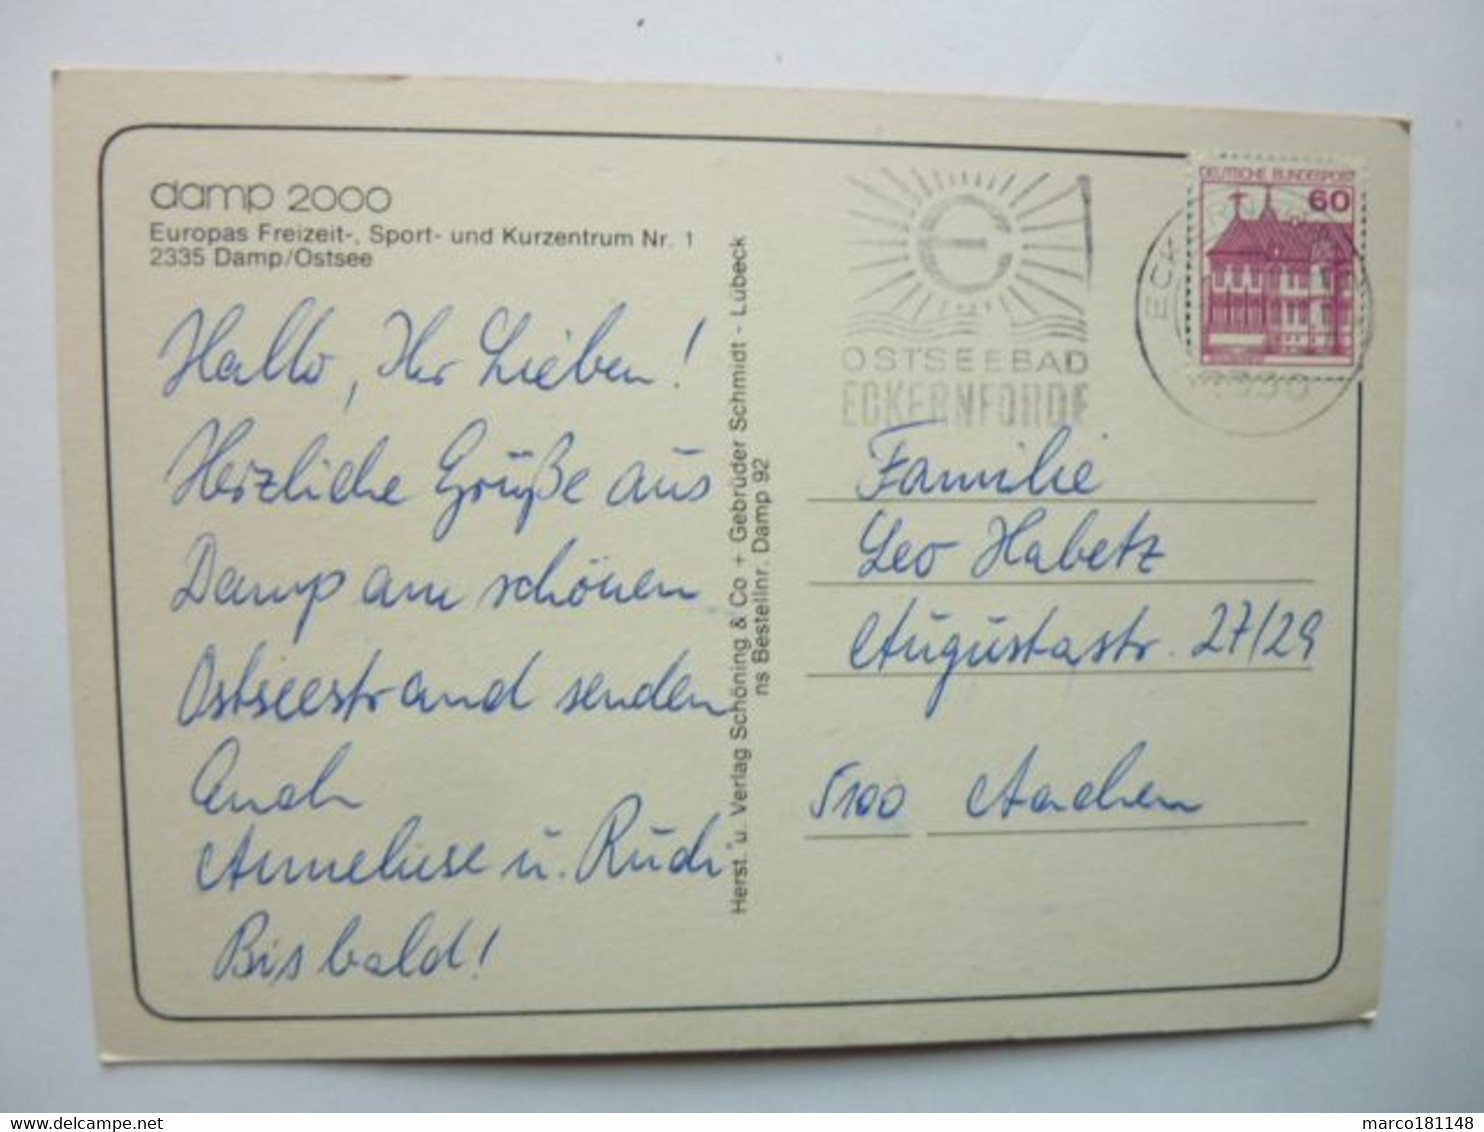 damp 2000
Europas Freizeit-, Sport- und Kurzentrum Nr. 1
2335 Damp/Ostsee
Hallo, Ihr Lieben!
Herzliche Grüße aus
Damp am schönen
Ostseestrand senden
Euch
Anneliese u. Rudi
Bis bald!
Herst. u. Verlag Schöning & Co + Gebrüder Schmidt - Lübeck
ns Bestellnr. Damp 92
OSTSEEBAD
ECKERNFÖRDE
DEUTSCHE BUNDESPOST
60
Familie
Leo Habetz
Augustastr. 27/29
5100 Aachen
marco181148